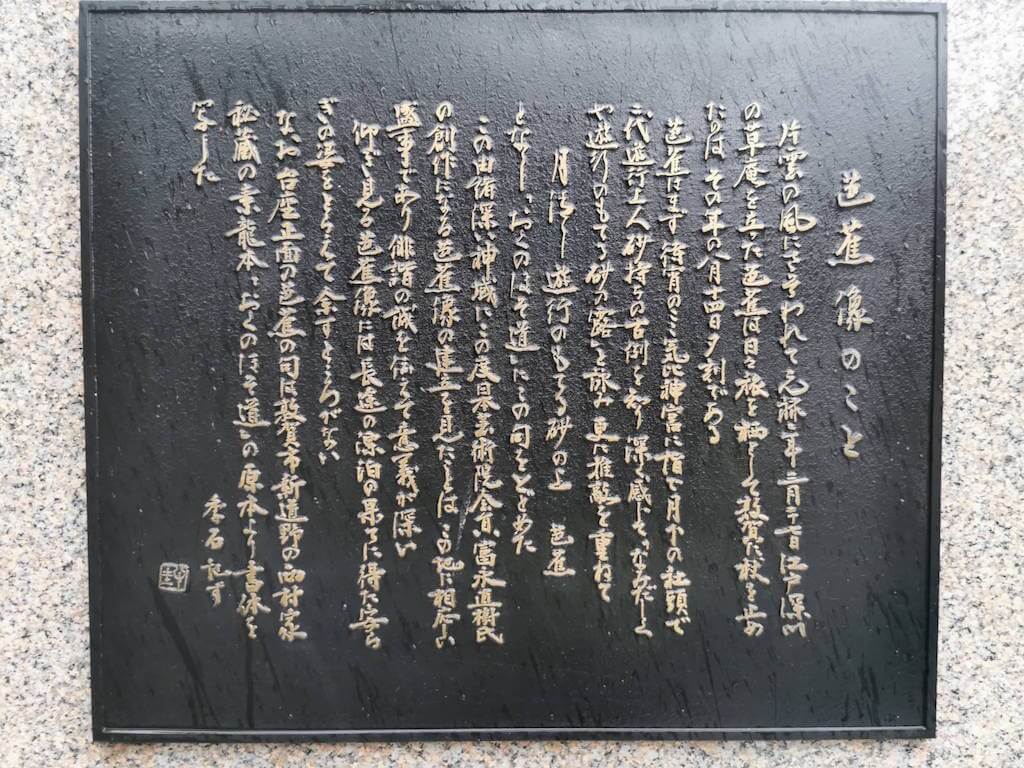 芭蕉像のこと
片雲の風にさそわれて元禄二年三月二十七日江戸深川
の草庵を立った芭蕉は日々旅を栖として敦賀に杖を止め
たのはその年の八月十四日夕刻である
芭蕉はまず待宵の気比神宮に詣で月下の社頭で
二代遊行上人砂持ちの古例を知り深く感じて「なみだしくや遊行のもてる砂の露」と詠み更に推敲を重ねて
月清し遊行のもてる砂の上 芭蕉
となし「おくのほそ道」にこの句をとどめた
この由緒深い神域にこの度日本芸術院会員、富永直樹氏
の創作になる芭蕉像の建立を見たことはこの地に相応しい
盛事であり俳諧の誠を伝えて意義が深い
仰ぎ見る芭蕉像には長途の漂泊の果てに得た安ら
ぎの姿をとらえて余すところがない
なお台座正面の芭蕉の句は敦賀市新道野の西村家
秘蔵の素龍本「おくのほそ道」の原本より書体を
写した
季石記す